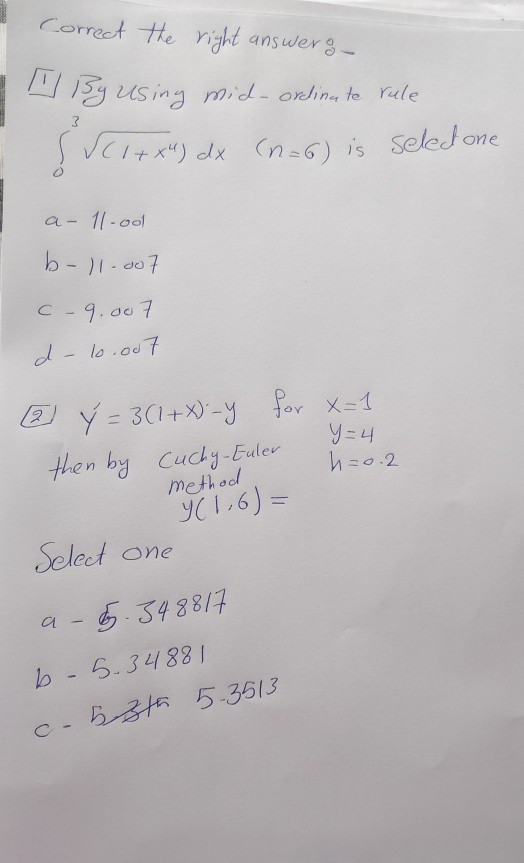 Correct the right answer :-
[1] By using mid-ordinate rule
∫₀³ √(1+x⁴) dx (n=6) is select one
a - 11.001
b - 11.007
c - 9.007
d - 10.007
[2] y' = 3(1+x) - y for x=1
y=4
then by Cuchy-Euler h=0.2
method
y(1.6) =
Select one
a - 5.348817
b - 5.34881
c - 5.3513